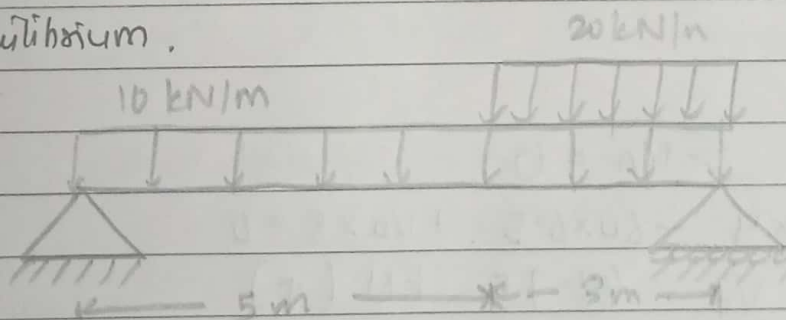 uilibrium.
20 kN/m
10 kN/m
5 m
3m